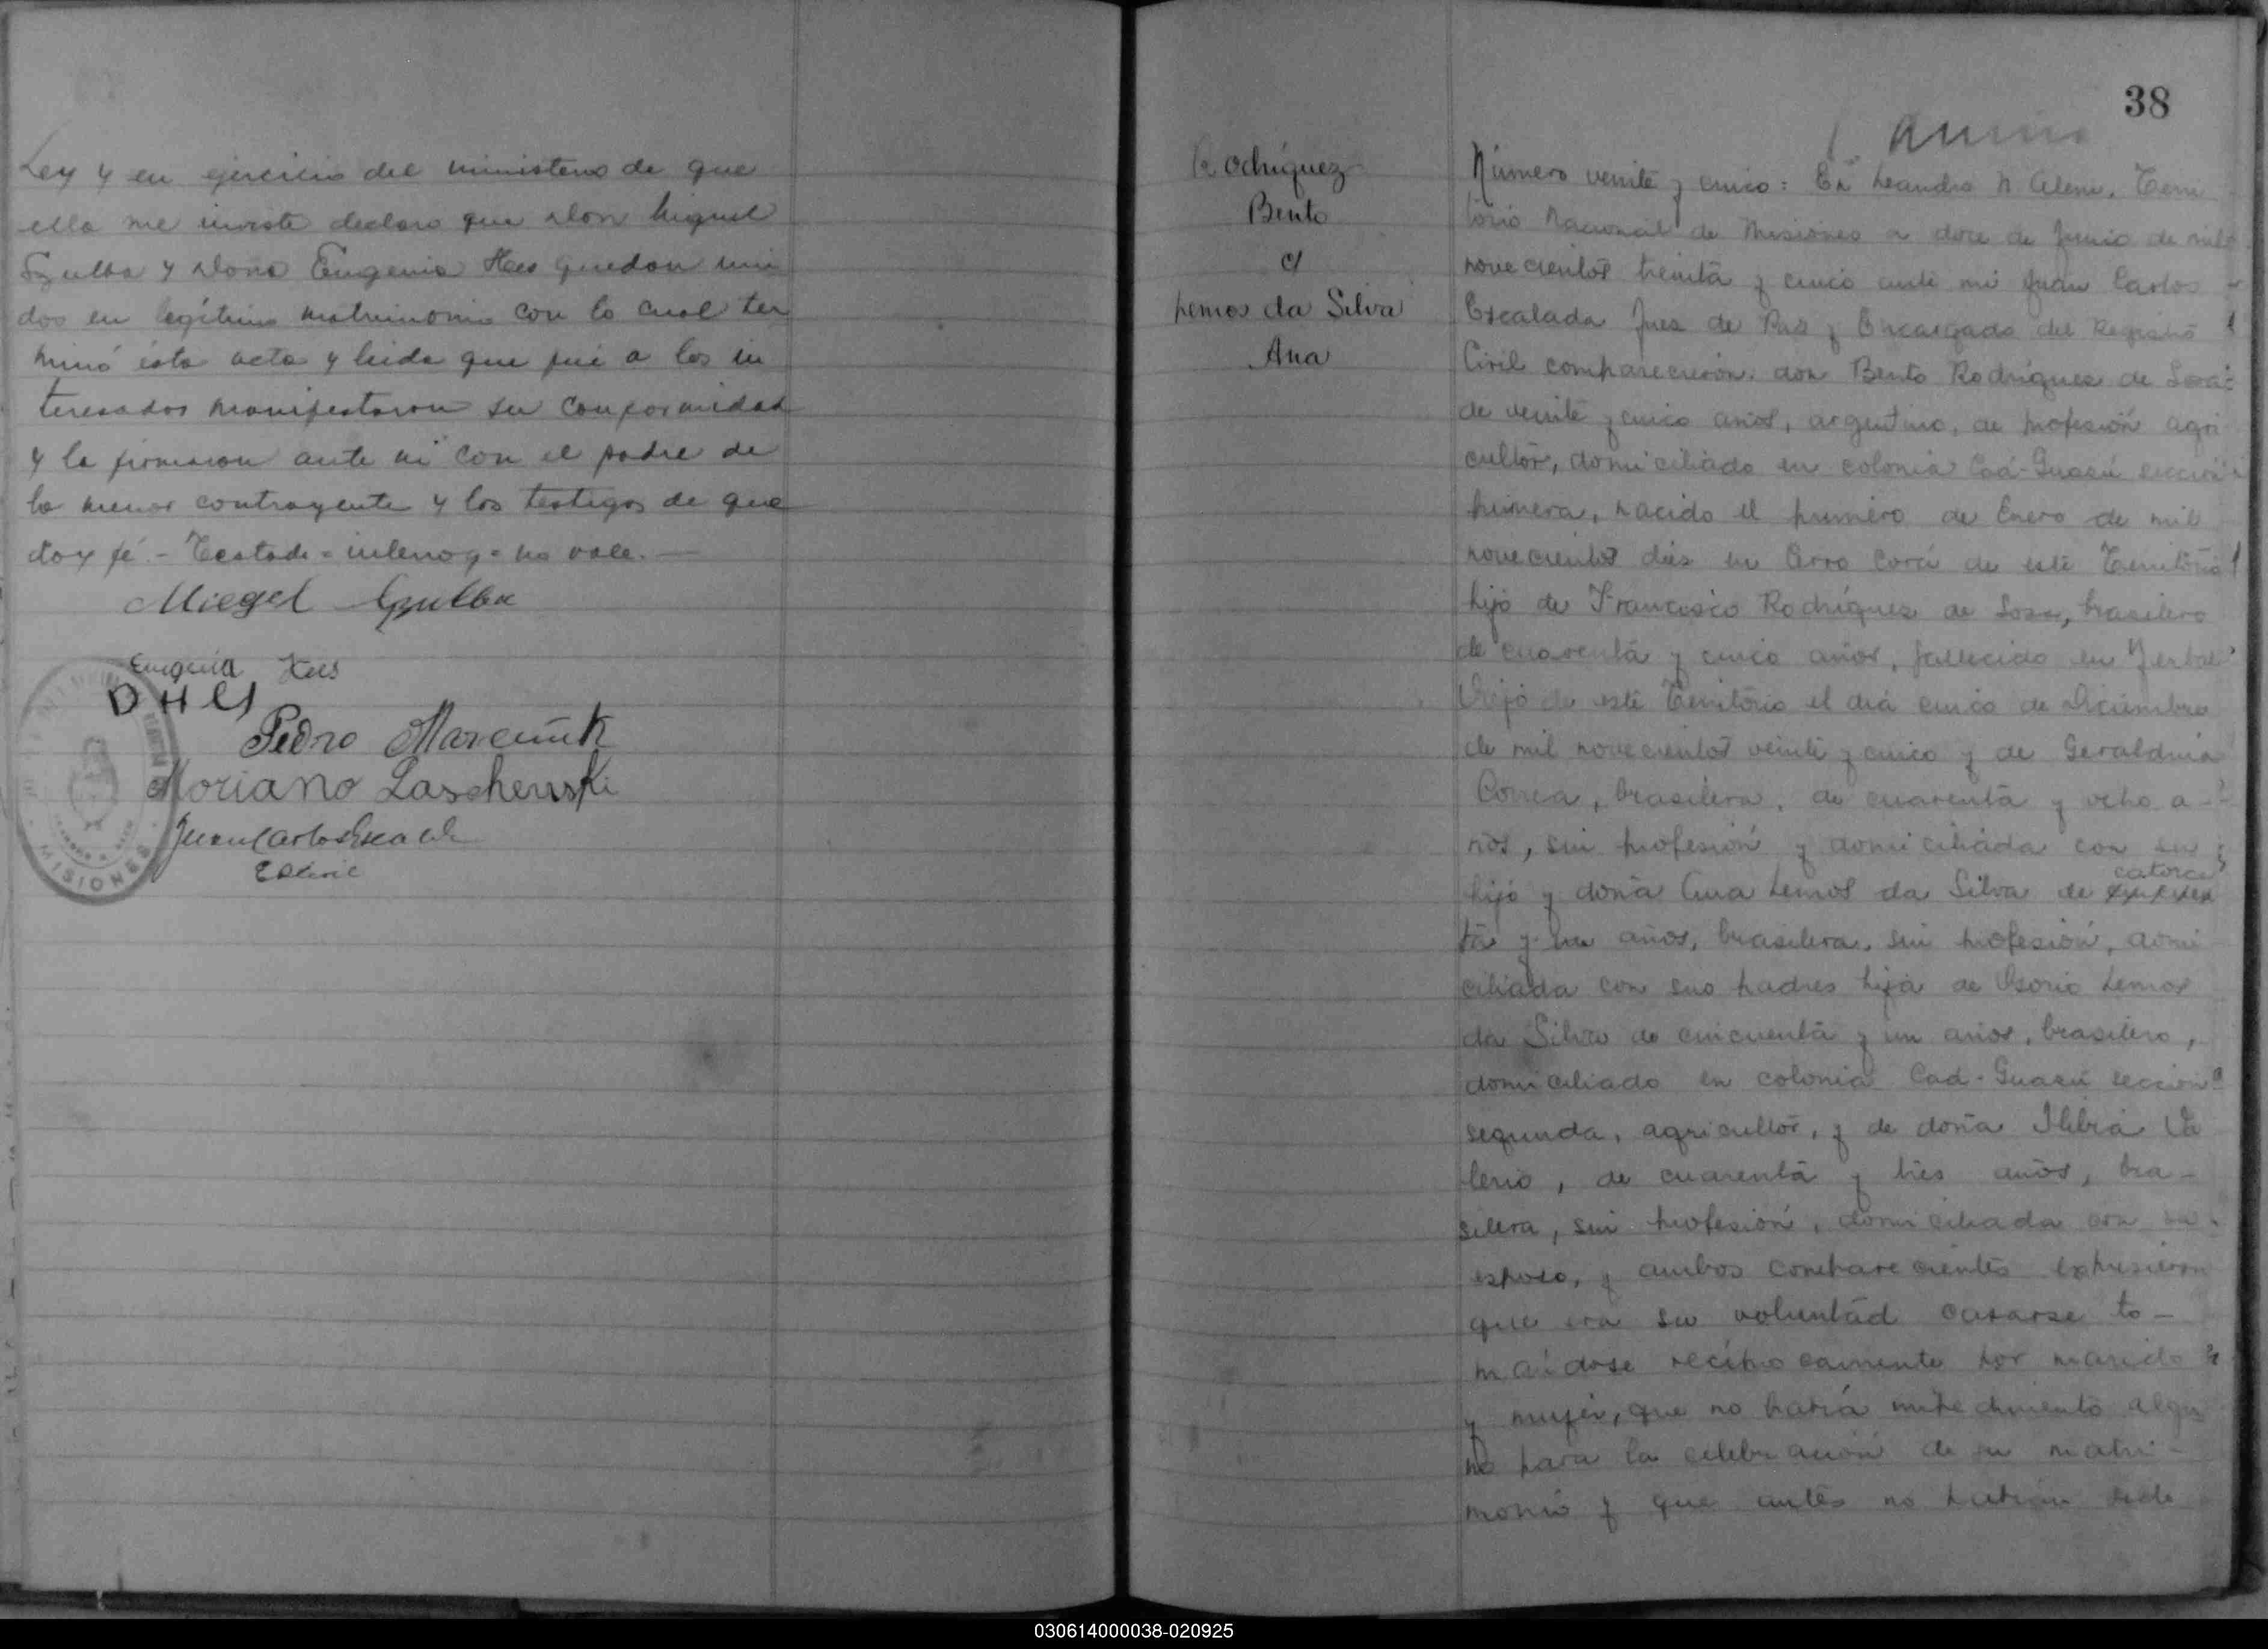 Ley y en ejercicio del ministerio de que
ella me inviste declaro que don Miguel
Szulba y dona Eugenia Hes quedan uni
dos en legítimo matrimonio con lo cual ter
minó esta acta y leida que fué a los in
teresados manifestaron su conformidad
y la firmaron ante mi con el padre de
la menor contrayente y los testigos de que
doy fé.- Testado = interlog = no vale.—
Miegel
Eugenia Hes
D H
Pedro MarciniK
Moriano Laschenski
Juan Carlos Escalada
MISIONES
38
Rodríguez
Bento
c/
Lemos da Silva
Ana
Número veinte y cinco: En Leandro N. Alem, Terri
torio Nacional de Misiones a doce de Junio de mil
novecientos treinta y cinco ante mi Juan Carlos
Escalada Juez de Paz y Encargado del Registro
Civil comparecieron: don Bento Rodríguez de Sosa
de veinte y cinco años, argentino, de profesión agri
cultor, domiciliado en colonia Caá-Guazú sección
primera, nacido el primero de Enero de mil
novecientos diez en Cerro Corá de este Territorio
hijo de Francisco Rodríguez de Sosa, brasilero
de cuarenta y cinco años, fallecido en Yerbal
Viejo de este Territorio el día cinco de Diciembre
de mil novecientos veinte y cinco y de Geraldina
Correa, brasilera, de cuarenta y ocho a-
ños, sin profesión y domiciliada con su
hijo y doña Ana Lemos da Silva de catorce
ta y un años, brasilera, sin profesión, domi
ciliada con sus padres hija de Osorio Lemos
da Silva de cincuenta y un años, brasilero,
domiciliado en colonia Caá-Guazú sección
segunda, agricultor, y de doña Va
lerio, de cuarenta y tres años, bra-
silera, sin profesión, domiciliada con su
esposo, y ambos comparecientes expresaron
que era su voluntad casarse to-
mándose recíprocamente por marido
y mujer, que no había impedimento algu
no para la celebración de su matri-
monio y que antes no habían sido
030614000038-020925